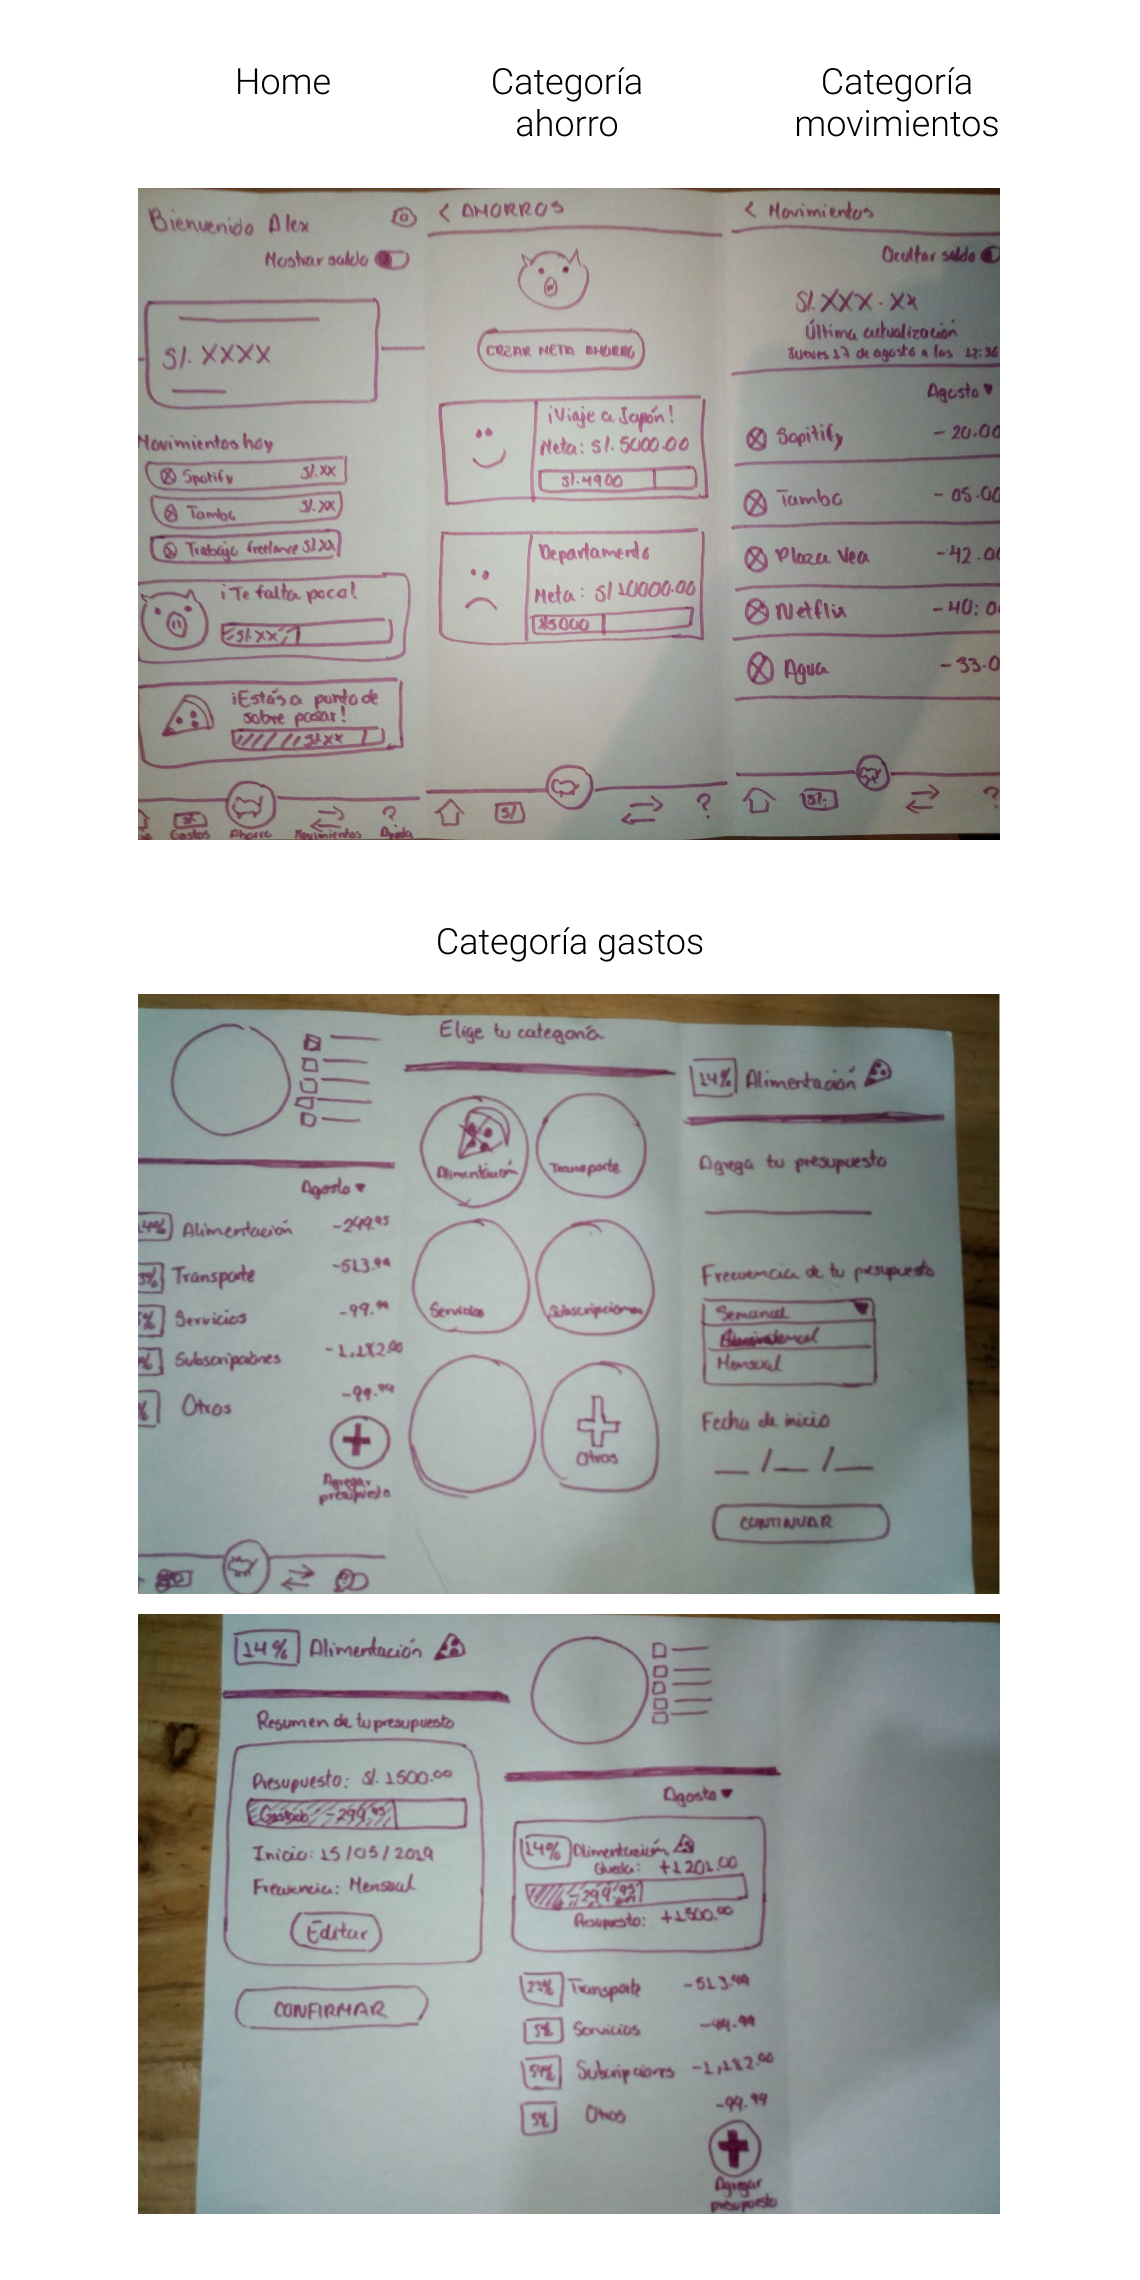 Home
Categoría
ahorro
Categoría
movimientos
Bienvenido Alex
Mostrar saldo
S/. XXXX
Movimientos hoy
Spotify S/.XX
Tambo S/.XX
Trabajo freelance S/.XX
¡Te falta poco!
S/.XX
¡Estás a punto de
sobre pasar!
S/.XX
Gastos Ahorro Movimientos Ayuda
?
< AHORROS
CREAR META AHORRO
¡Viaje a Japón!
Meta: S/. 5000.00
S/.4900
Departamento
Meta: S/ 10000.00
S/5000
S/
?
< Movimientos
Ocultar saldo
S/. XXX.XX
Última actualización
Jueves 17 de agosto a las 12:36
Agosto ▾
Sopitify - 20.00
Tambo - 05.00
Plaza Vea -42.0
Netflix -40:0
Agua -33.0
S/.
?
Categoría gastos
Agosto ▾
14%  Alimentación -249.95
Transporte -513.99
Servicios -99.99
Subscripciones -1,182.00
Otros -99.99
Agregar
presupuesto
Elige tu categoría
Alimentación
Transporte
Servicios
Subscripciones
Otros
14% Alimentación
Agrega tu presupuesto
Frecuencia de tu presupuesto
Semanal
Mensual
Fecha de inicio
__ /__ /__
CONTINUAR
14% Alimentación
Resumen de tu presupuesto
Presupuesto: S/. 1500.00
Gastado -299.95
Inicio: 15/05/2019
Frecuencia: Mensual
Editar
CONFIRMAR
Agosto ▾
14% Alimentación
Queda: +1201.00
-299.95
Presupuesto: +1500.00
Transporte -513.99
5% Servicios -99.99
Subcripciones -1,182.00
5% Otros -99.99
Agregar
presupuesto